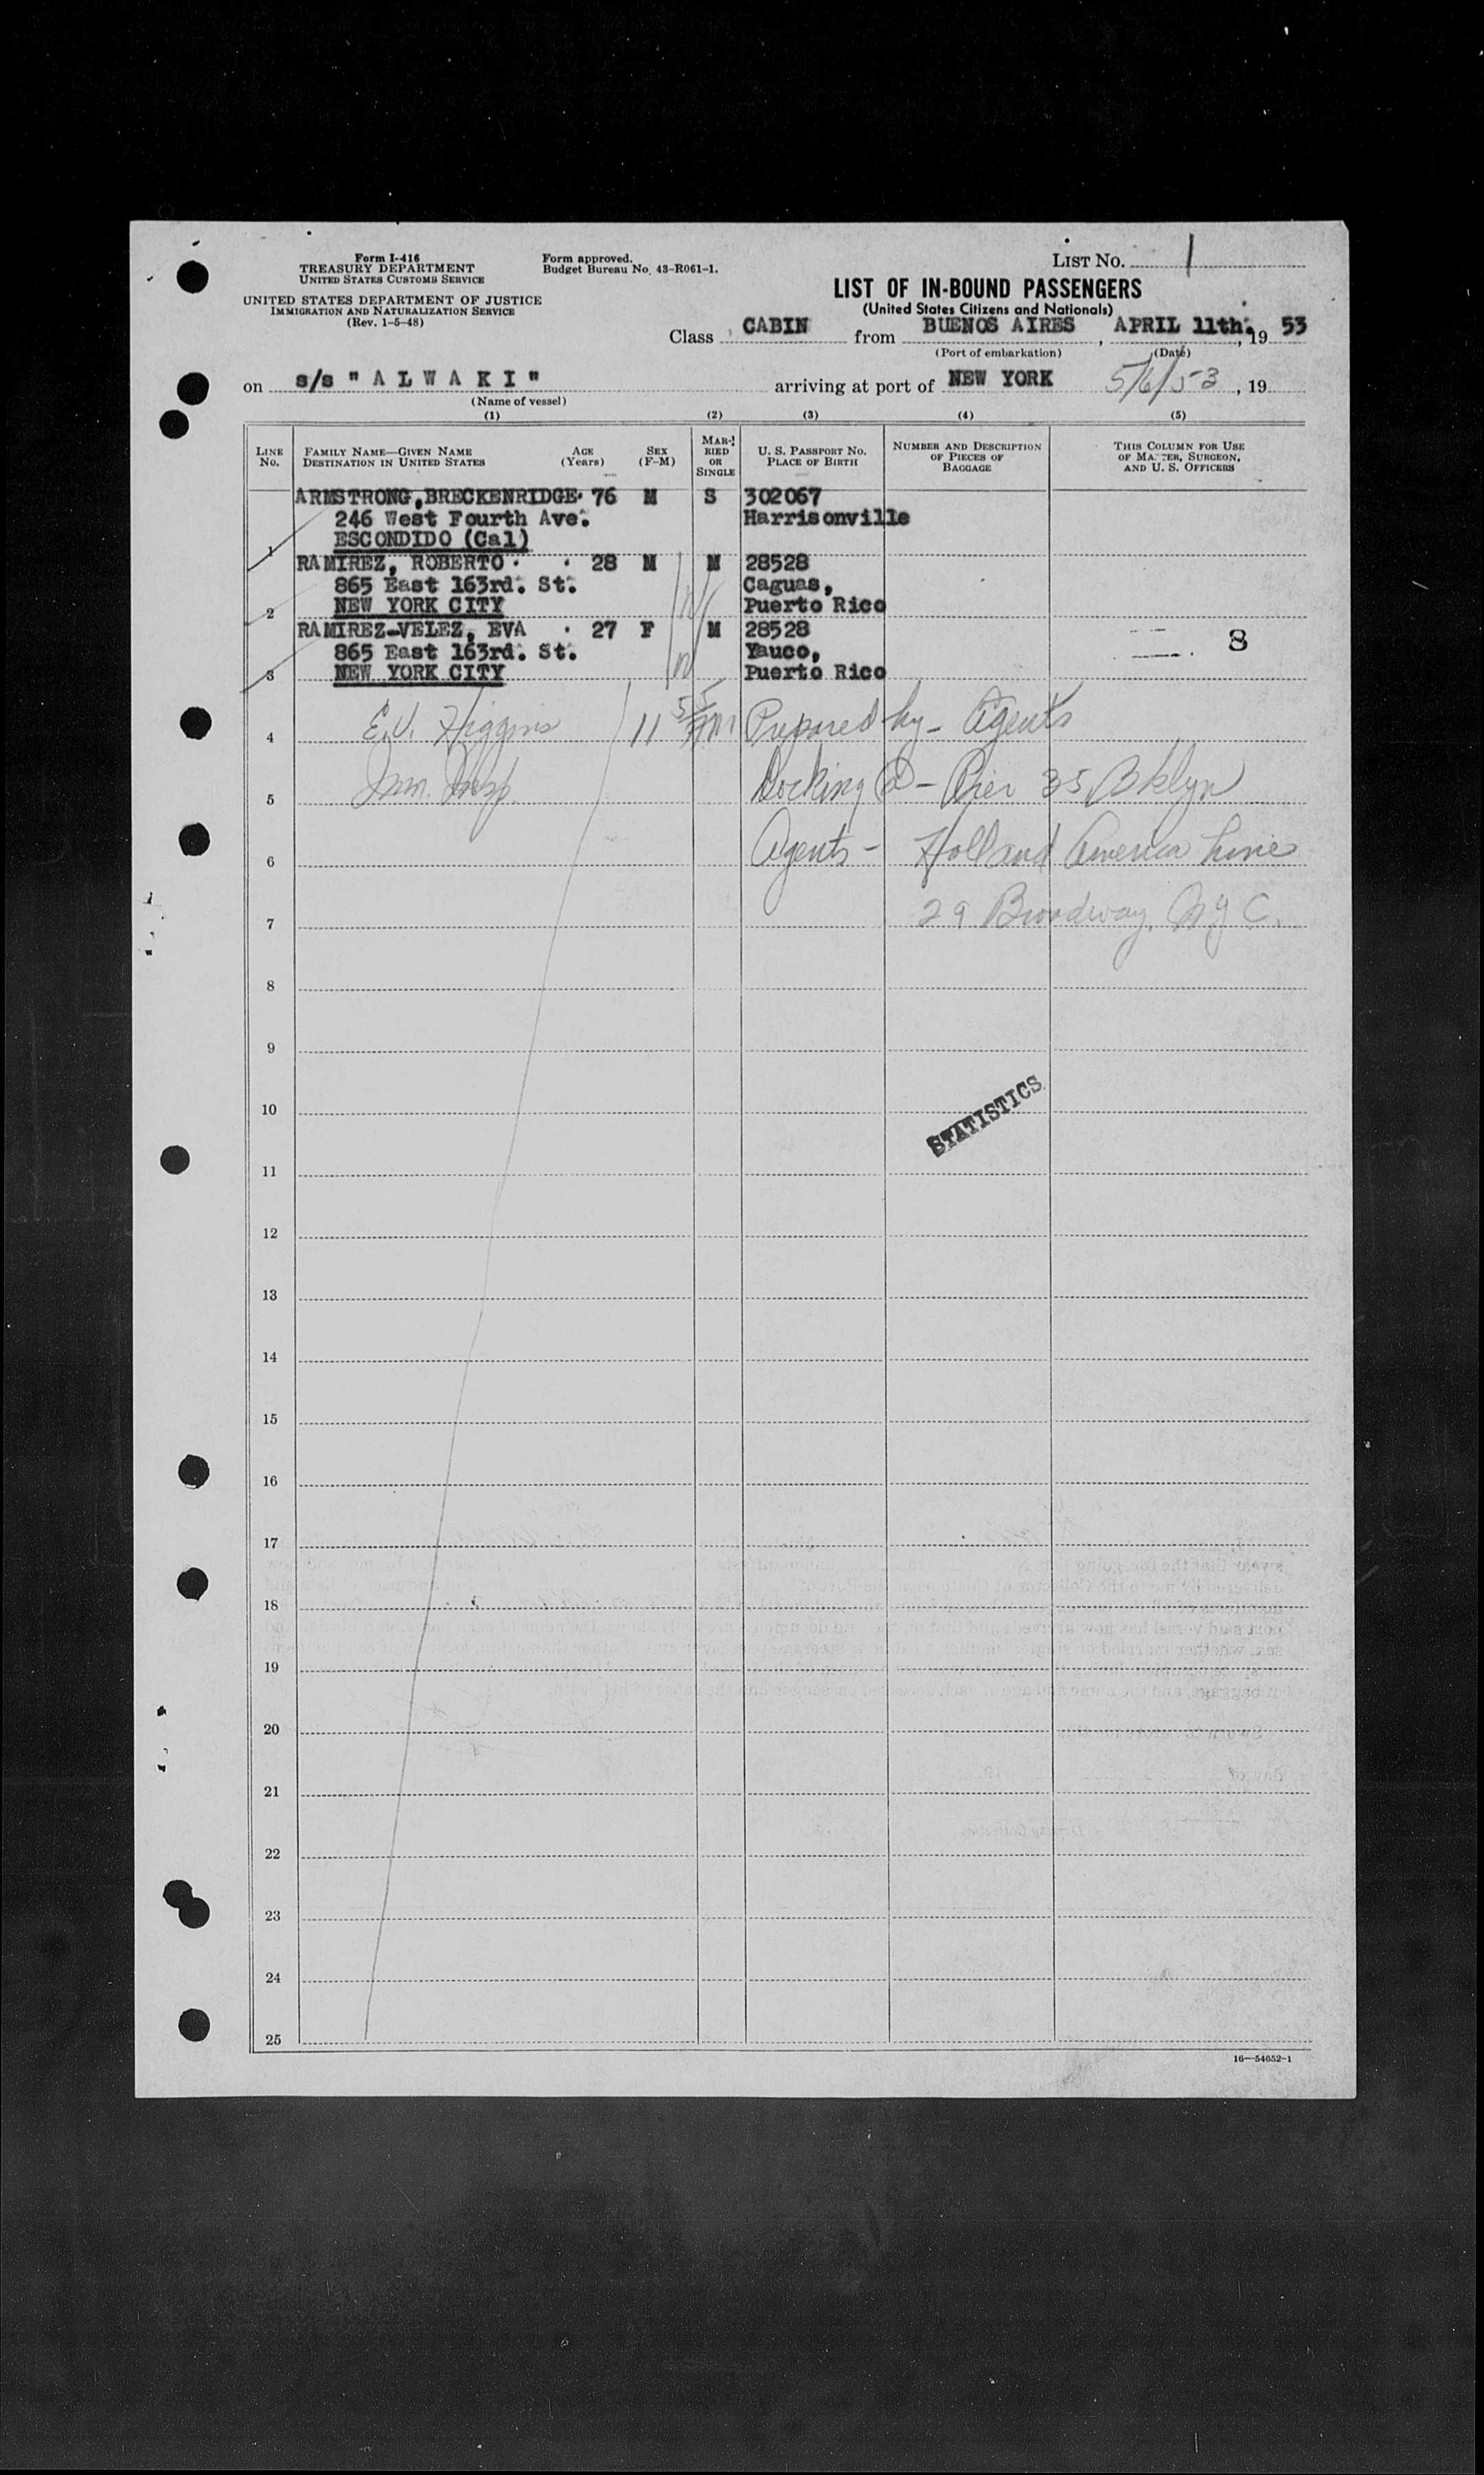 Form I-416
TREASURY DEPARTMENT
UNITED STATES CUSTOMS SERVICE
UNITED STATES DEPARTMENT OF JUSTICE
IMMIGRATION AND NATURALIZATION SERVICE
(Rev. 1-5-48)
Form approved.
Budget Bureau No. 43-R061-1.
LIST NO. 1
LIST OF IN-BOUND PASSENGERS
(United States Citizens and Nationals)
Class CABIN from BUENOS AIRES, APRIL 11th., 19 53
(Port of embarkation) (Date)
on s/s "ALWAKI" arriving at port of NEW YORK 5/6/53, 19
(Name of vessel)
(1) (2) (3) (4) (5)
LINE NO. FAMILY NAME—GIVEN NAME DESTINATION IN UNITED STATES AGE (Years) SEX (F-M) MARRIED OR SINGLE U. S. PASSPORT NO. PLACE OF BIRTH NUMBER AND DESCRIPTION OF PIECES OF BAGGAGE THIS COLUMN FOR USE OF MASTER, SURGEON, AND U. S. OFFICERS
ARMSTRONG, BRECKENRIDGE. 76 M S 302067
246 West Fourth Ave. Harrisonville
1 ESCONDIDO (Cal)
RAMIREZ, ROBERTO. 28 M M 28528
865 East 163rd. St. Caguas,
2 NEW YORK CITY Puerto Rico
RAMIREZ-VELEZ, EVA 27 F M 28528
865 East 163rd. St. Yauco, 8
3 NEW YORK CITY Puerto Rico
4 E.J. Higgins 11 55 AM Prepared by - Agents
5 Imm. Insp. Docking @ - Pier 35 Bklyn
6 Agents - Holland America Line
7 29 Broadway, NYC.
8
9
10
STATISTICS
11
12
13
14
15
16
17
18
19
20
21
22
23
24
25
16—54652-1